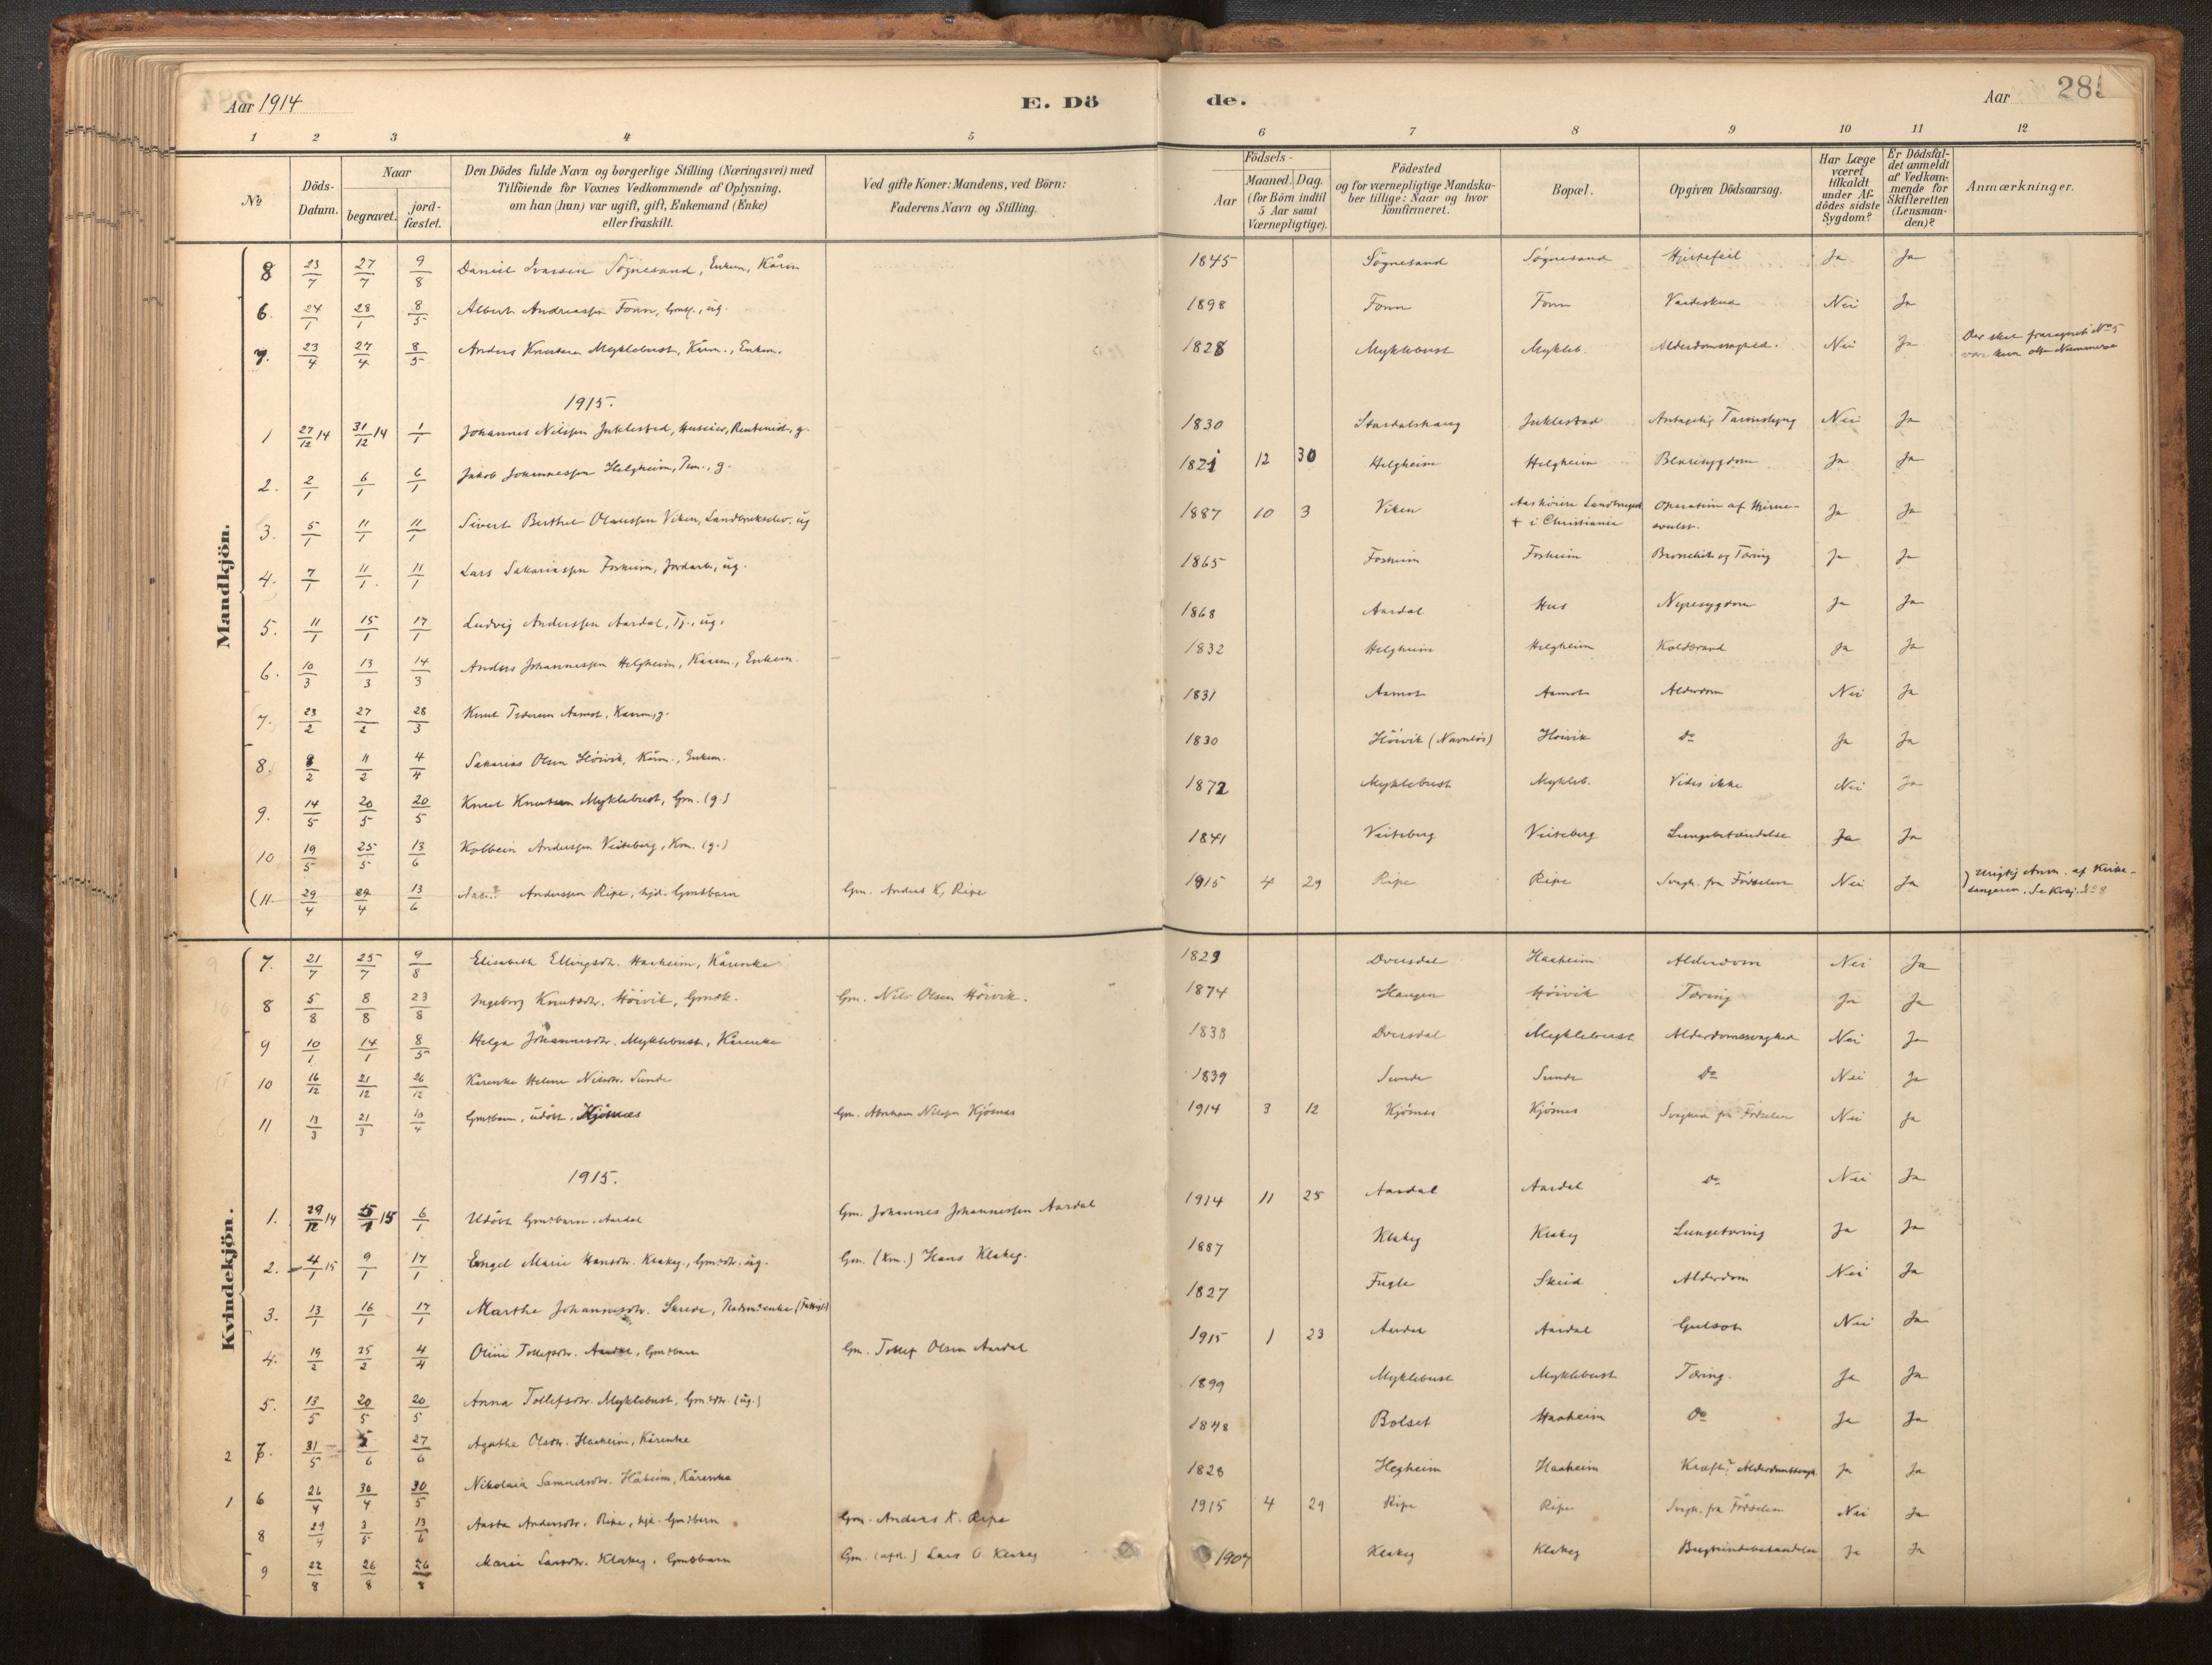 Aar 1914 E. Dö de. Aar 285
1 2 3 4 5 6 7 8 9 10 11 12
No
Döds-Datum.
Naar begravet. jordfæstet.
Den Dödes fulde Navn og borgerlige Stilling (Næringsvei) med
Tilföiende for Voxnes Vedkommende af Oplysning,
om han (hun) var ugift, gift, Enkemand (Enke)
eller fraskilt.
Ved gifte Koner: Mandens, ved Börn:
Faderens Navn og Stilling.
Födsels-
Aar Maaned. Dag.
(for Börn indtil
5 Aar samt
Værnepligtige).
Födested
og for værnepligtige Mandska-
ber tillige: Naar og hvor
konfirmeret.
Bopæl.
Opgiven Dödsaarsag.
Har Læge
været
tilkaldt
under Af-
dödes sidste
Sygdom?
Er Dödsfal-
det anmeldt
af Vedkom-
mende for
Skifteretten
(Lensman-
den)?
Anmærkninger.
Mandkjön.
8 23/7 27/7 9/8 Daniel Ivarsen Sögnesand, Enkem, Kårm 1845 Sögnesand Sögnesand Hjertefeil Ja Ja
6. 24/1 28/1 8/5 Albert Andreassen Fonn, ug. 1898 Fonn Fonn Nei Ja
7. 23/4 27/4 8/5 Anders Knutsen Myklebust, Enkem. 1828 Myklebust Mykleb. Alderdomssvaghed. Nei Ja
1915.
1 27/12 14 31/12 14 1/1 Johannes Nilssen Juklestad, Huseier, g. 1830 Juklestad Nei Ja
2. 2/1 6/1 6/1 Jakob Johannessen Helgheim, g. 1821 12 30 Helgheim Helgheim Blæresygdom Ja Ja
3. 5/1 11/1 11/1 Sivert Berthel Olaussen Viken, ug 1887 10 3 Viken + i Christiania Operation af Hjerne-
svulst. Ja Ja
4. 7/1 11/1 11/1 Lars Sakariassen Forheim, Jordarb., ug. 1865 Forheim Forheim Bronchit og Tæring Ja Ja
5. 11/1 15/1 17/1 Ludvig Anderssen Aardal, Tj., ug. 1868 Aardal Hus Nyresygdom Ja Ja
6. 10/3 13/3 14/3 Anders Johannessen Helgheim, Kaarm., Enkem. 1832 Helgheim Helgheim Koldbrand Ja Ja
7. 23/2 27/2 28/3 Knut Aamot, g. 1831 Aamot Aamot Alderdom Nei Ja
8. 8/2 11/2 4/4 Sakarias Olsen Höivik, Kårm., Enkem. 1830 Höivik (Navnlös) Höivik Do Ja Ja
9. 14/5 20/5 20/5 Knut Knutsen Myklebust, Gm. (g) 1872 Myklebust Mykleb. Vides ikke Nei Ja
10 19/5 25/5 13/6 Kolbein Anderssen Veiteberg, Km. (g.) 1841 Veiteberg Veiteberg Lungebetændelse Ja Ja
(11. 29/4 29/4 13/6 Anderssen Ripe, hjd. Gmdbarn Gm. Anders K. Ripe 1915 4 29 Ripe Ripe Svagh. fra Födselen Nei Ja } urigtig Anm. af Kirke-
sangeren. Se Kvkj. No 8
Kvindekjön.
7. 21/7 25/7 9/8 Elisabeth Ellingsdtr. Haaheim, Kårenke 1829 Dvergsdal Haaheim Alderdom Nei Ja
8 5/8 8/8 23/8 Ingeborg Knutsdtr. Höivik, Gmdk. Gm. Nils Olsen Höivik. 1874 Haugen Höivik Tæring Ja Ja
9 10/1 14/1 8/5 Helga Johannesdtr. Myklebust, Kårenke 1838 Dvergsdal Myklebust Alderdomssvaghed Nei Ja
10 16/12 21/12 26/12 Kårenke Helene Nilsdtr. Sunde 1839 Sunde Sunde Do Nei Ja
11 13/3 21/3 10/4 Gmdbarn, udöbt. Kjösnes Gm. Abraham Nilssen Kjösnes 1914 3 12 Kjösnes Kjösnes Svaghed fra Födselen Nei Ja
1915.
1. 29/12 14 5/1 15 6/1 Udöbt Gmdbarn. Aardal Gm. Johannes Johannessen Aardal 1914 11 25 Aardal Aardal Do Nei Ja
2. 4/1 15 9/1 17/1 Engel Marie Hansdtr. Klakeg, Gmdtr. ug. Gm. (Km.) Hans Klakeg. 1887 Klakeg Klakeg Lungetæring Ja Ja
3. 13/1 16/1 17/1 Marthe Johannesdtr. Skrede, 1827 Fugle Skrid Alderdom Nei Ja
4. 19/2 25/2 4/4 Oline Tollefsdtr. Aardal, Gmdbarn Gm. Tollef Olsen Aardal 1915 1 23 Aardal Aardal Gulsot Nei Ja
5. 13/5 20/5 20/5 Anna Tollefsdtr. Myklebust, Gmdtr. (ug.) 1899 Myklebust Myklebust Tæring. Ja Ja
2 7. 31/5 5/6 27/6 Agathe Olsdtr. Haaheim, Kårenke 1848 Bolset Haaheim Do Ja Ja
1 6 26/4 30/4 30/5 Nikolaia Samuelsdtr. Håheim, Kårenke 1828 Hegheim Haaheim Kræft? Alderdomssvagh. Ja Ja
8 29/4 3/5 13/6 Aasta Andersdtr. Ripe, hjd. Gmdbarn Gm. Anders K. Ripe 1915 4 29 Ripe Ripe Svagh. fra Födselen Nei Ja
9 22/8 26/8 26/8 Marie Larsdtr. Klakeg. Gmdbarn Gm. (afd.) Lars O. Klakeg 1907 Klakeg Klakeg Bughindebetændelse Ja Ja